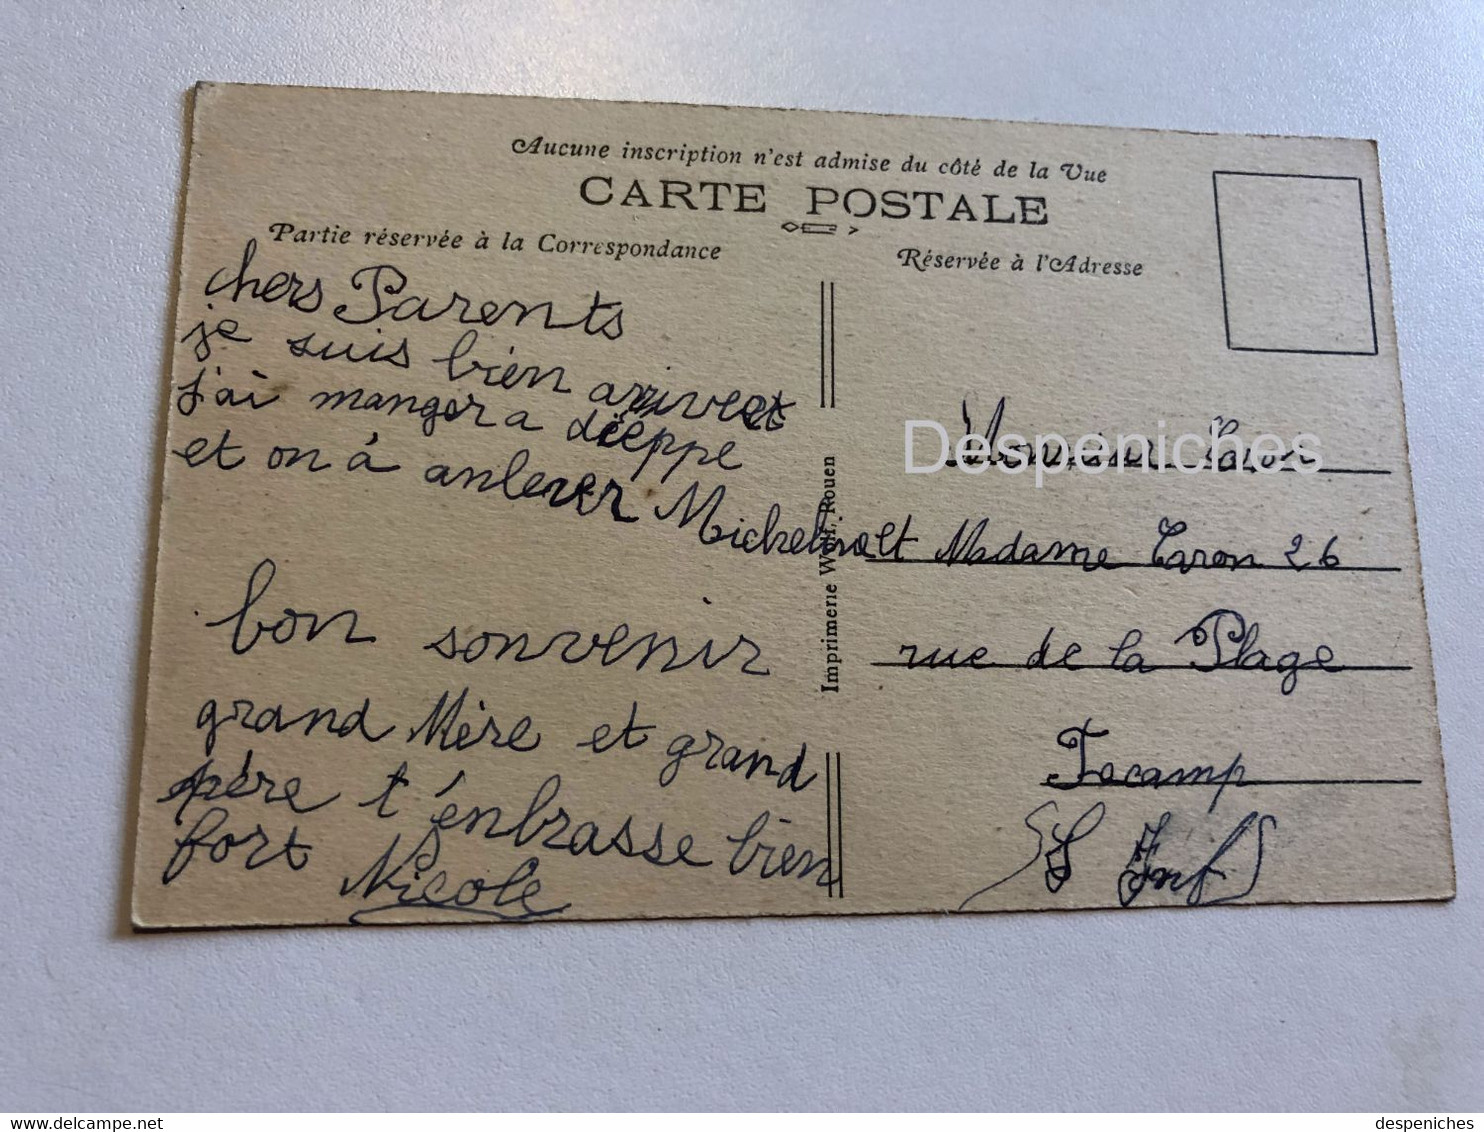 Aucune inscription n'est admise du côté de la Vue
CARTE POSTALE
Partie réservée à la Correspondance
Réservée à l'Adresse
chers Parents
je suis bien arrivée et
j'ai manger a dieppe
et on á anlever Micheline
bon sonvenir
grand Mère et grand
père t'énbrasse bien
fort Nicole
Imprimerie Wolf, Rouen
Monsieur Caron
et Madame Caron 26
rue de la Plage
Fecamp
(S Inf)
Despeniches
delcampe.net
despeniches